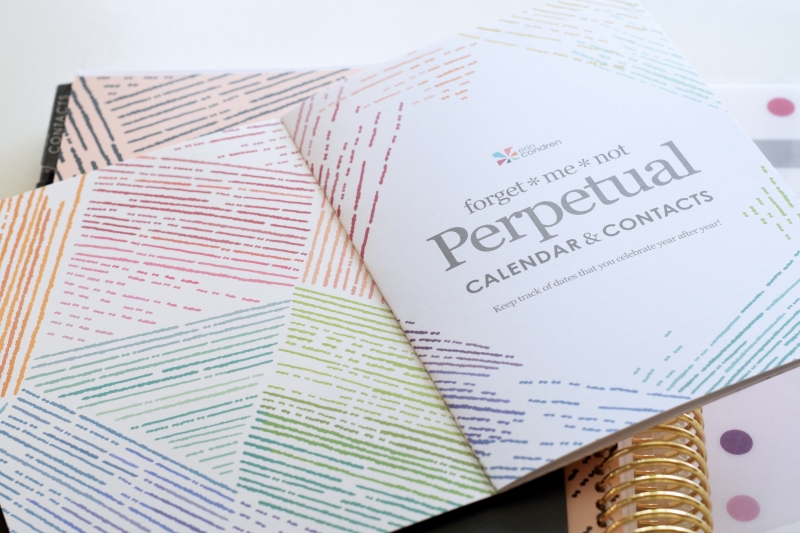 CONTACTS
erin
condren
forget*me*not
Perpetual
CALENDAR & CONTACTS
Keep track of dates that you celebrate year after year!